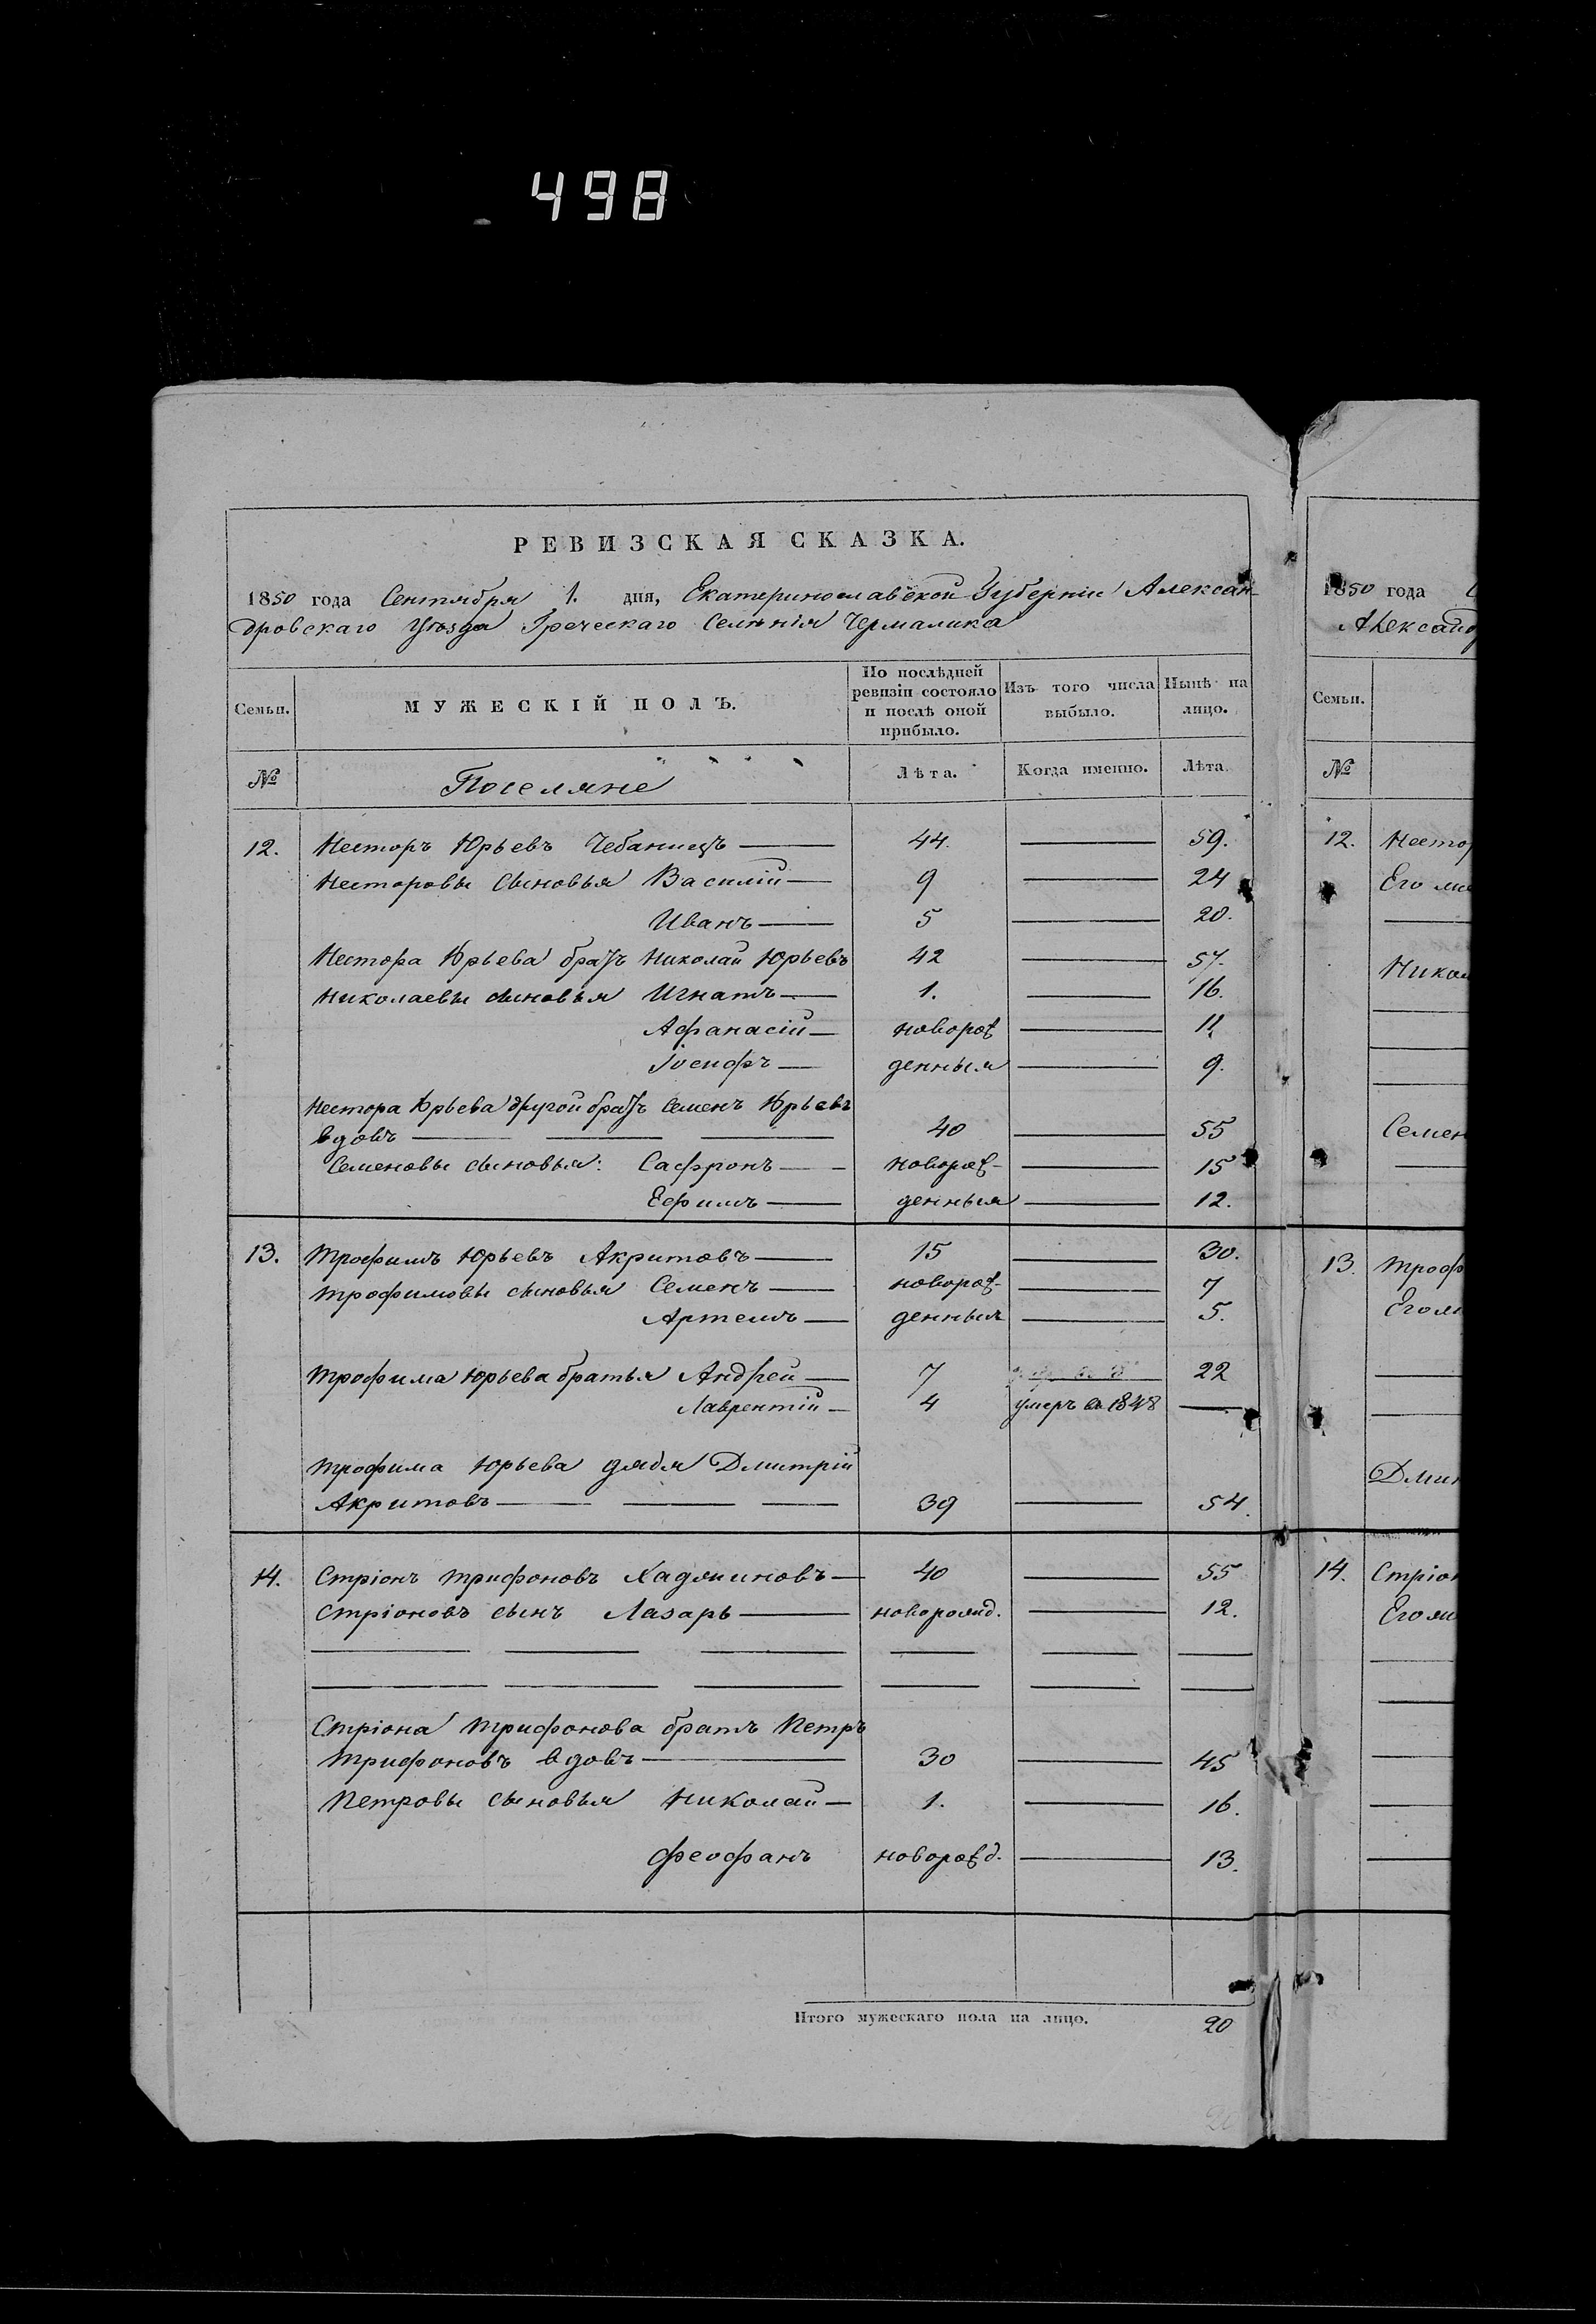 498
РЕВИЗСКАЯ СКАЗКА.
1850 года Сентября 1. дня, Екатеринославской Губернии Алексан-
дровскаго Уѣзда Греческаго Селѣнія Чермалика
Семьи.
МУЖЕСКІЙ ПОЛЪ.
По послѣдней ревизіи состояло и послѣ оной прибыло.
Изъ того числа выбыло.
Нынѣ на лицо.
№ Поселяне Лѣта. Когда именно. Лѣта
12. Несторъ Юрьевъ Чебанецъ 44. 59.
Несторовы сыновья Василій 9 24
Иванъ 5 20.
Нестора Юрьева братъ Николай Юрьевъ 42 57.
Николаевы сыновья Игнатъ 1. 16.
Афанасій новорож 11.
Іосифъ денныя 9.
Нестора Юрьева другой братъ Семенъ Юрьевъ
вдовъ 40 55
Семеновы сыновья: Сафронъ новорож- 15
Ефимъ денныя 12.
13. Трофимъ Юрьевъ Акритовъ 15 30.
Трофимовы сыновья Семенъ новорож- 7
Артемъ денныя 5.
Трофима Юрьева братья Андрей 7 22
Лаврентій 4 умеръ въ 1848
Трофима Юрьева дядя Дмитрій
Акритовъ 39 54.
14. Стріонъ Трифоновъ Хаджиновъ 40 55
Стріоновъ сынъ Лазарь новорожд. 12.
Стріона Трифонова братъ Петръ
Трифоновъ вдовъ 30 45
Петровы сыновья Николай 1. 16.
Феофанъ новорожд. 13.
Итого мужескаго пола на лицо. 20
1850 года
Александ
Семьи.
№
12. Нестор
Его
Никол
Семен
13. Троф
Его
Дми
14. Стріон
Его